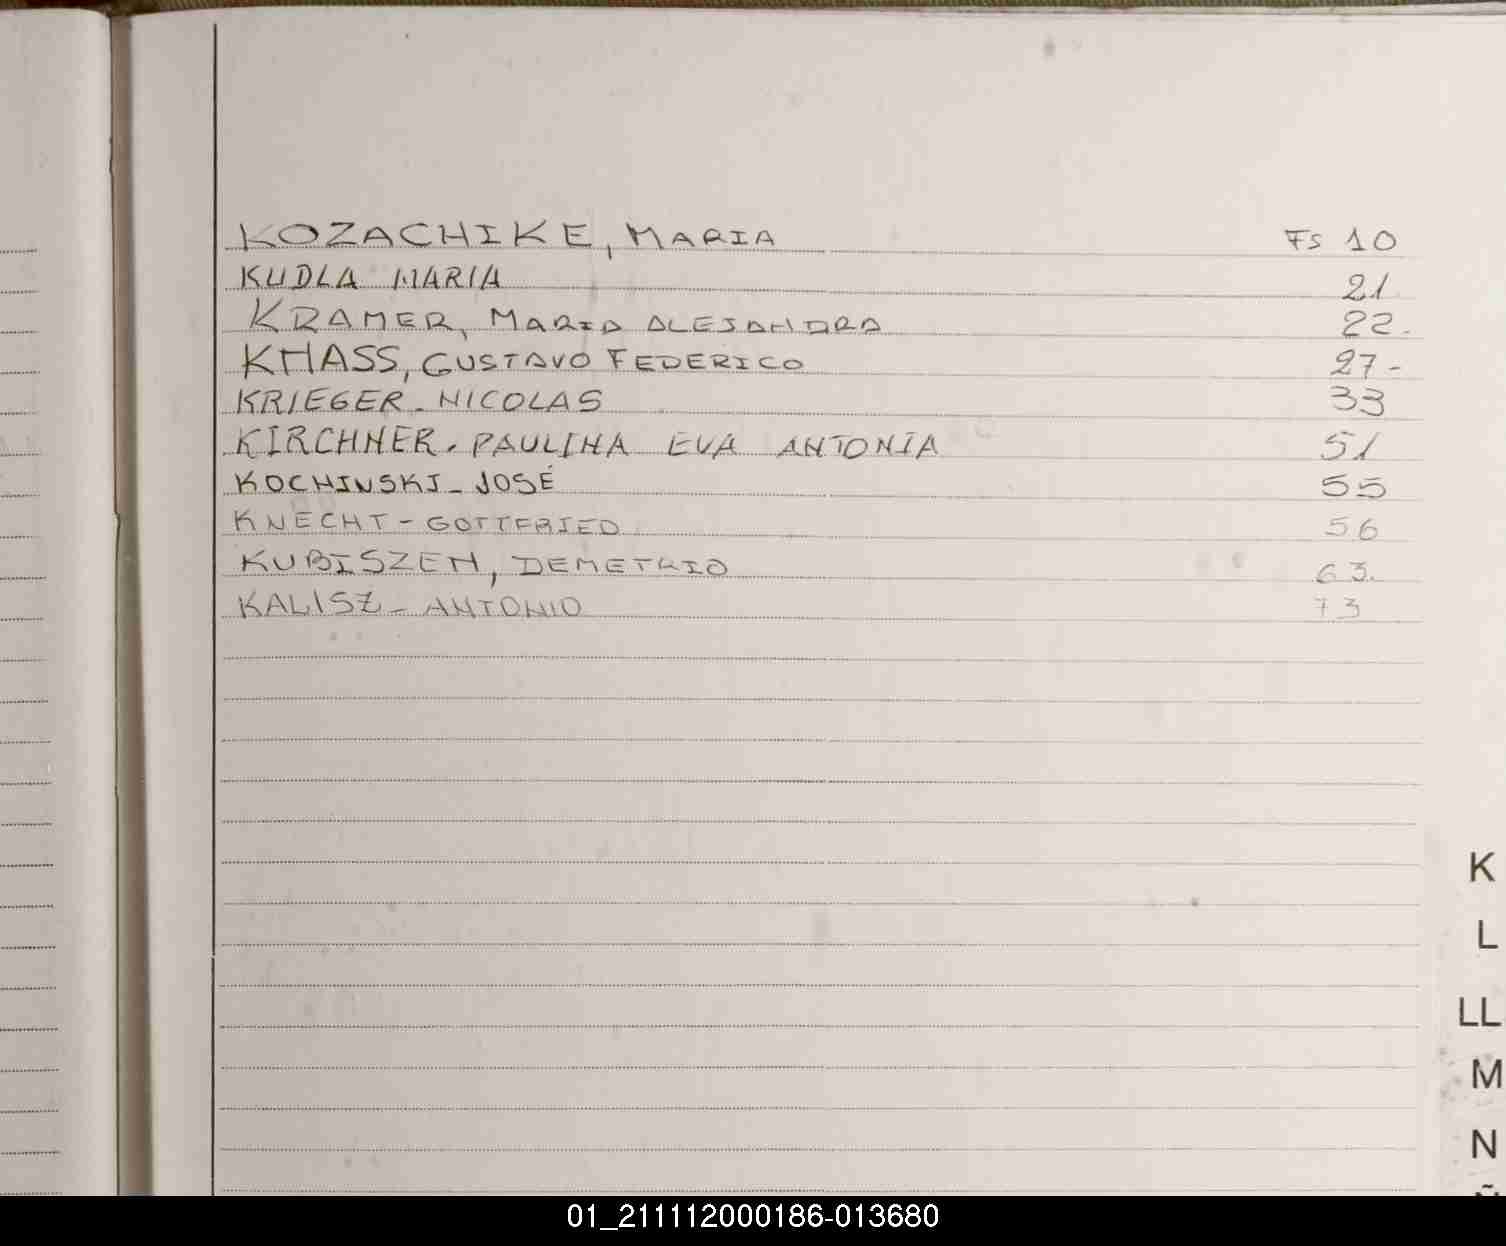 KOZACHIKE, MARIA Fs 10
KUDLA MARIA 21
KRAMER, MARIA ALEJANDRA 22.
KNASS, GUSTAVO FEDERICO 27-
KRIEGER - NICOLAS 33
KIRCHNER - PAULINA EVA ANTONIA 51
KOCHINSKI - JOSÉ 55
KNECHT - GOTTFRIED 56
KUBISZEN, DEMETRIO 63.
KALISZ - ANTONIO 73
K
L
LL
M
N
01_211112000186-013680